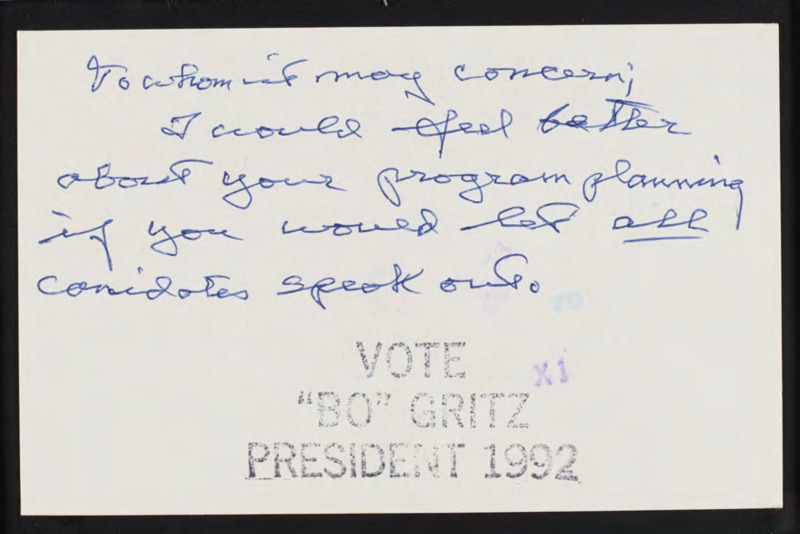 To whom it may concern;
I would feel better
about your program planning
if you would let all
canidates speak out.
VOTE
X1
"BO" GRITZ
PRESIDENT 1992